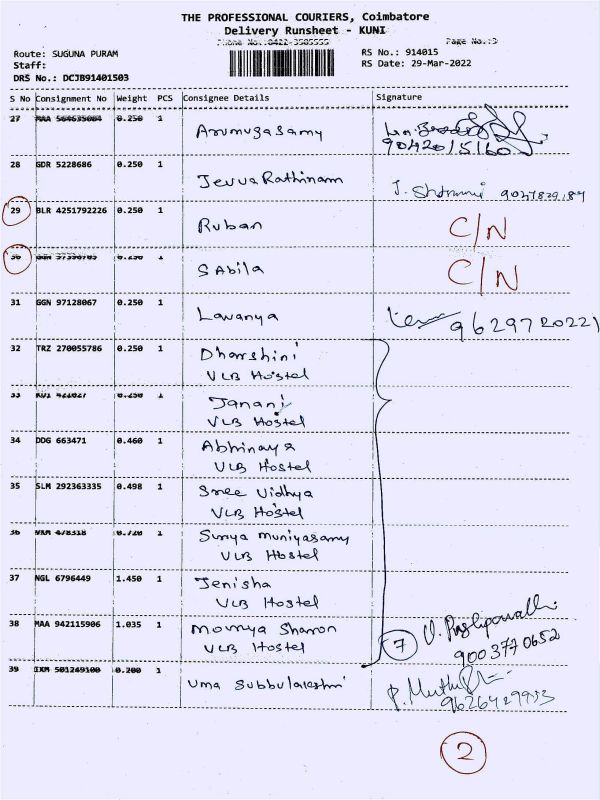 THE PROFESSIONAL COURIERS, Coimbatore
Delivery Runsheet - KUNI
Phone No.:0422-3585555 Page No.:3
Route: SUGUNA PURAM RS No.: 914015
Staff: RS Date: 29-Mar-2022
DRS No.: DCJB91401503
S No Consignment No Weight PCS Consignee Details Signature
27 MAA 564635084 0.250 1 Arumugasamy
9042015160
28 GDR 5228686 0.250 1 Jeyya Rathinam
29 BLR 4251792226 0.250 1 Ruban C/N
30 0.250 1 Sabila C/N
31 GGN 97128067 0.250 1 Lavanya 9629720221
32 TRZ 270055786 0.250 1 Dharshini
VLB Hostel
33 0.250 1 Janani
VLB Hostel
34 DDG 663471 0.460 1 Abhinaya
VLB Hostel
35 SLM 292363335 0.498 1 Sree Vidhya
VLB Hostel
36 0.720 1 Surya Muniyasamy
VLB Hostel
37 NGL 6796449 1.450 1 Jenisha
VLB Hostel
38 MAA 942115906 1.035 1 Mowmya Sharon
VLB Hostel 7 9003770652
39 IXM 501249100 0.200 1 Uma Subbulakshmi
2